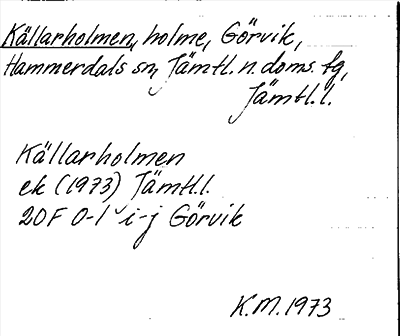 Källarholmen, holme, Görvik,
Hammerdals sn, Jämtl. n. doms. tg,
Jämtl. l.
Källarholmen
ek (1973) Jämtl. l.
20F 0-1 i-j Görvik
K.M. 1973